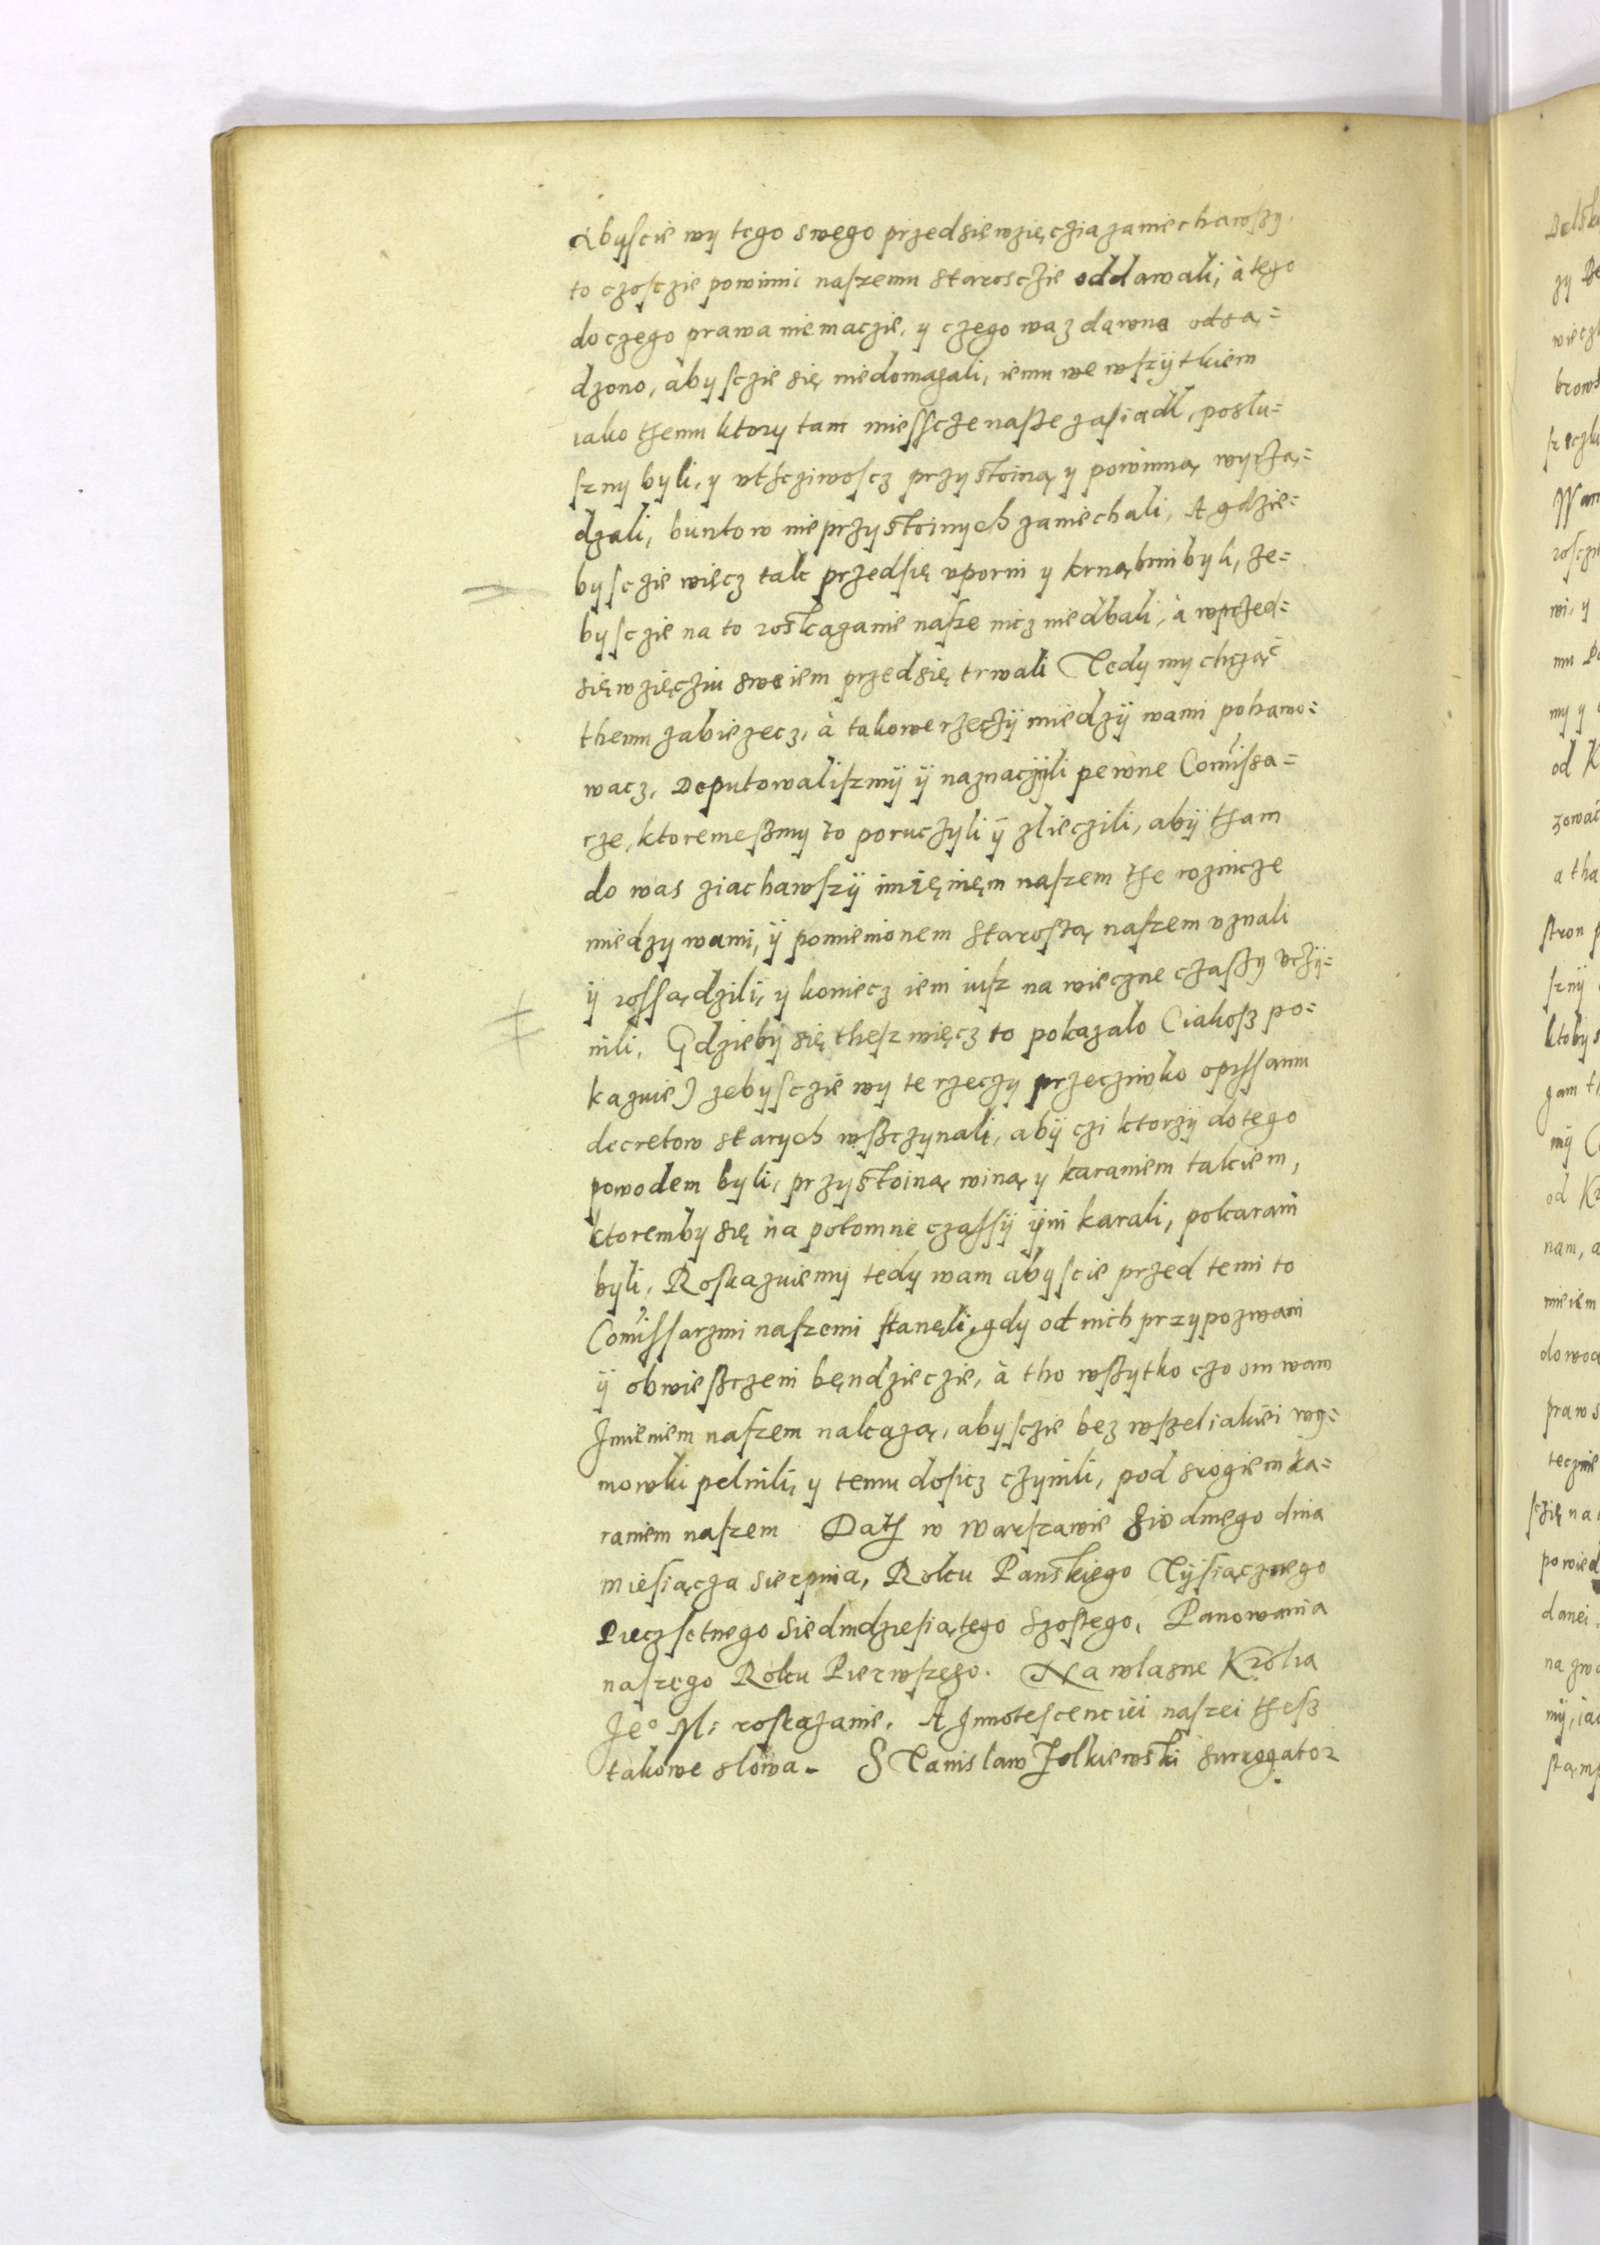 abyscie wy tego swego przedsiewzięczia zaniechawszy,
to czosczie powinni naszemu Starosczie oddawali, à tego
do czego prawa nie maczie, y czego waz dawno odsą=
dzono, àbysczie się niedomagali, iemu we wszÿtkiem
iako themu ktory tam miessczе nasze zasiadł, posłu=
szny byli, y uthcziwoscz przystoiną y powinną wyrzą=
dzali, buntow nieprzystoinych zaniechali, A gdzie=
bysczie więcz tak przedsię uporni y krnąbrni byli, że=
bysczie na to roskazanie nasze nicz niedbali, à w przed=
sięwzięcziu swoiem przedsię trwali Tedy my chcząc
themu zabiezecz, à takowe rzeczÿ miedzÿ wami pohamo=
wacz, Deputowaliszmÿ ÿ naznaczÿli pewne Comissa=
rze, ktoremeszmy to poruczyli ÿ zlieczili, abÿ tham
do was ziachawszÿ imięnięm naszem the roznicze
miedzy wami, ÿ pomienionem Starostą naszem uznali
ÿ rossądzili, y koniecz iem iusz na wieczne czassy uczÿ=
nili. Gdzieby się thesz więcz to pokazało (iakosz po=
kazuie) zebysczie wy te rzeczy przecziwko opissaniu
decretow starych wszczynali, abÿ czi ktorzÿ do tego
powodem byli, przystoiną winą y karaniem takiem,
ktoremby się na potomnie czassÿ ÿni karali, pokarani
byli, Roskazuiemy tedy wam abyscie przed temi to
Comissarzmi naszemi stanęli, gdy od nich przypozwani
ÿ obwieszczeni bęndzieczie, à tho wszytko czo om wam
Imieniem naszem nakazą, abysczie bez wszeliakiei wy=
mowki pełnili, y temu dosicz czynili, pod srogiem ka=
raniem naszem Dath w Warszawie Siodmego dnia
Miesiącza Sierpnia, Roku Panskiego Tÿsiącznego
Pieczsetnego Siedmdziesiątego Szostego, Panowania
naszego Roku Pierwszego. Na własne Krolia
Je° M: roskazanie. A Innotescenciei naszei thesz
takowe słowa. Stanislaw Zolkiewski Surrogator